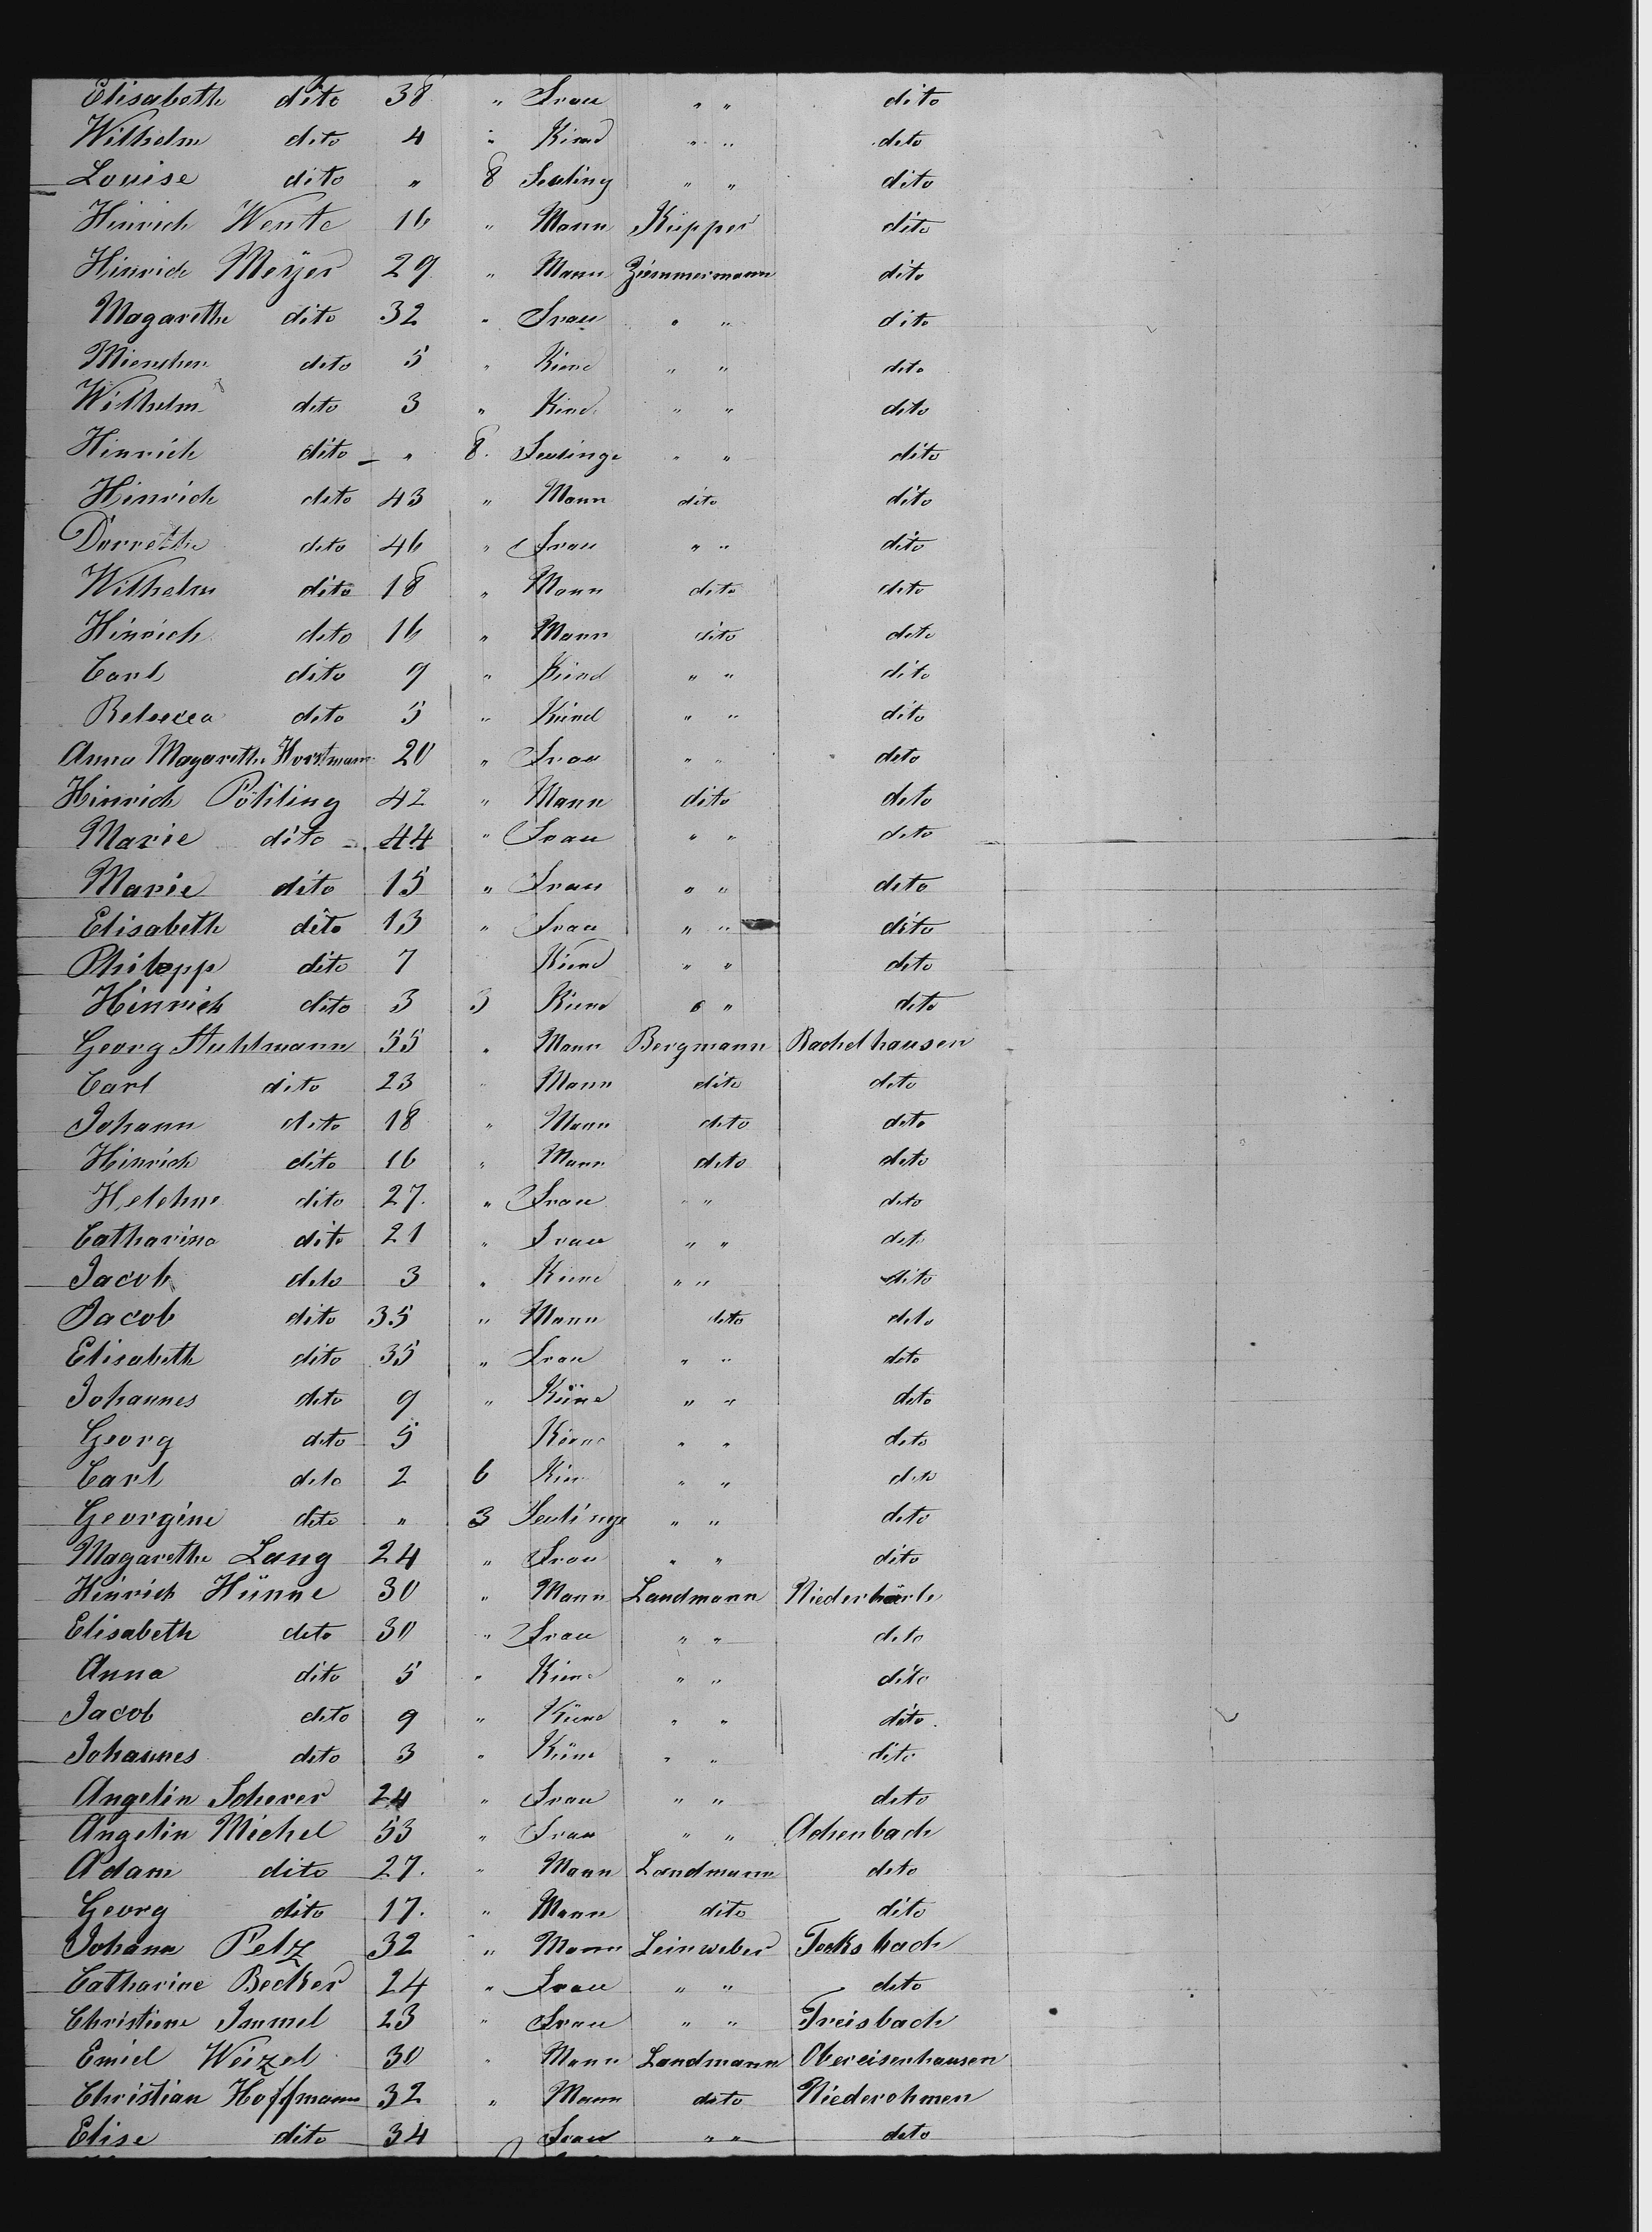 Elisabeth dito 38 " Frau " " dito
Wilhelm dito 4 " Kind " " dito
Louise dito " 8 Seuling " " dito
Hinrich Wente 16 " Mann Küpper dito
Hinrich Meÿer 29 " Mann Zimmermann dito
Magarethe dito 32 " Frau " " dito
Mienchen dito 5 " Kind " " dito
Wilhelm dito 3 " Kind " " dito
Hinrich dito " 8. Seulinge " " dito
Hinrich dito 43 " Mann dito dito
Dorrethe dito 46 " Frau " " dito
Wilhelm dito 18 " Mann dito dito
Hinrich dito 16 " Mann dito dito
Carl dito 9 " Kind " " dito
Rebecca dito 5 " Kind " " dito
Anna Magarethe Horstmann 20 " Frau " " dito
Hinrich Pöhling 42 " Mann dito dito
Marie dito 44 " Frau " " dito
Marie dito 15 " Frau " " dito
Elisabeth dito 13 " Frau " " dito
Philipp dito 7 Kind " " dito
Hinrich dito 3 3 Kind " " dito
Georg Stuhlmann 55 " Mann Bergmann Rachelhausen
Carl dito 23 " Mann dito dito
Johann dito 18 " Mann dito dito
Hinrich dito 16 " Mann dito dito
Helehne dito 27. " Frau " " dito
Catharina dito 21 " Frau " " dito
Jacob dito 3 " Kind " " dito
Jacob dito 35 " Mann dito dito
Elisabeth dito 35 " Frau " " dito
Johannes dito 9 " Kind " " dito
Georg dito 5 Kind " " dito
Carl dito 2 6 Kin " " dito
Georgine dito " 3 Seulinge " " dito
Magarethe Lang 24 " Frau " " dito
Hinrich Hünne 30 " Mann Landmann Niederhörle
Elisabeth dito 30 " Frau " " dito
Anna dito 5 " Kind " " dito
Jacob dito 9 " Kind " " dito.
Johannes dito 3 " Kind " " dito
Angelin Scherer 24 " Frau " " dito
Angelin Michel 53 " Frau " " Achenbach
Adam dito 27. " Mann Landmann dito
Georg dito 17. " Mann dito dito
Johann Pelz 32 " Mann Leinweber Focksbach
Catharine Becker 24 " Frau " " dito
Christiene Immel 23 " Frau " " Freisbach
Emiel Weizel 30 " Mann Landmann Obereisenhausen
Christian Hoffmann 32 " Mann dito Niederohmen
Elise dito 34 Frau " " dito